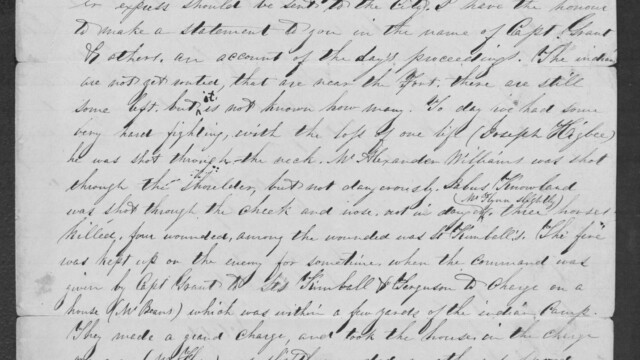 or express should be sent to the City. I have the honour
to make a statement to you in the name of Capt. Grant
& others, an account of the days proceedings. The indians
are not get united, that are near the Fort. there are still
some left. but it is not known how many. To day we had some
very hard fighting, with the loss of one life (Joseph Higbee)
he was shot through the neck. Mr Alexander Williams was shot
through the shoulder, but not dangerously. Jabus Knowland
was shot through the cheek and nose. not in danger, (Mr Flynn slightly) three horses
killed, four wounded, among the wounded was Lt Kimball's. The fire
was kept up on the enemy for sometime, when the command was
given by Capt Grant to Lts Kimball & Ferguson to Charge on a
house (Mr Beans) which was within a few yards of the indian Camp.
They made a grand Charge, and took the house, in the charge